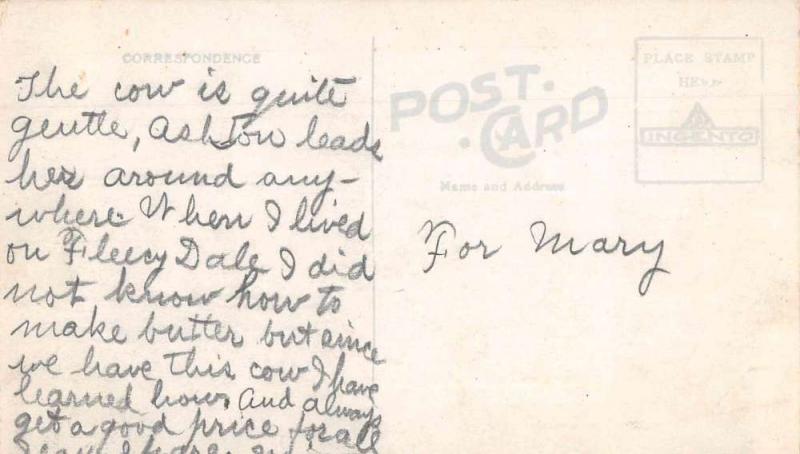 CORRESPONDENCE
The cow is quite
gentle, Ashton leads
her around any-
where. When I lived
on Fleecy Dale I did
not know how to
make butter but since
we have this cow I have
learned how. And always
get a good price for all
POST.
.CARD
Name and Address
PLACE STAMP
HERE
INGENTO
For Mary